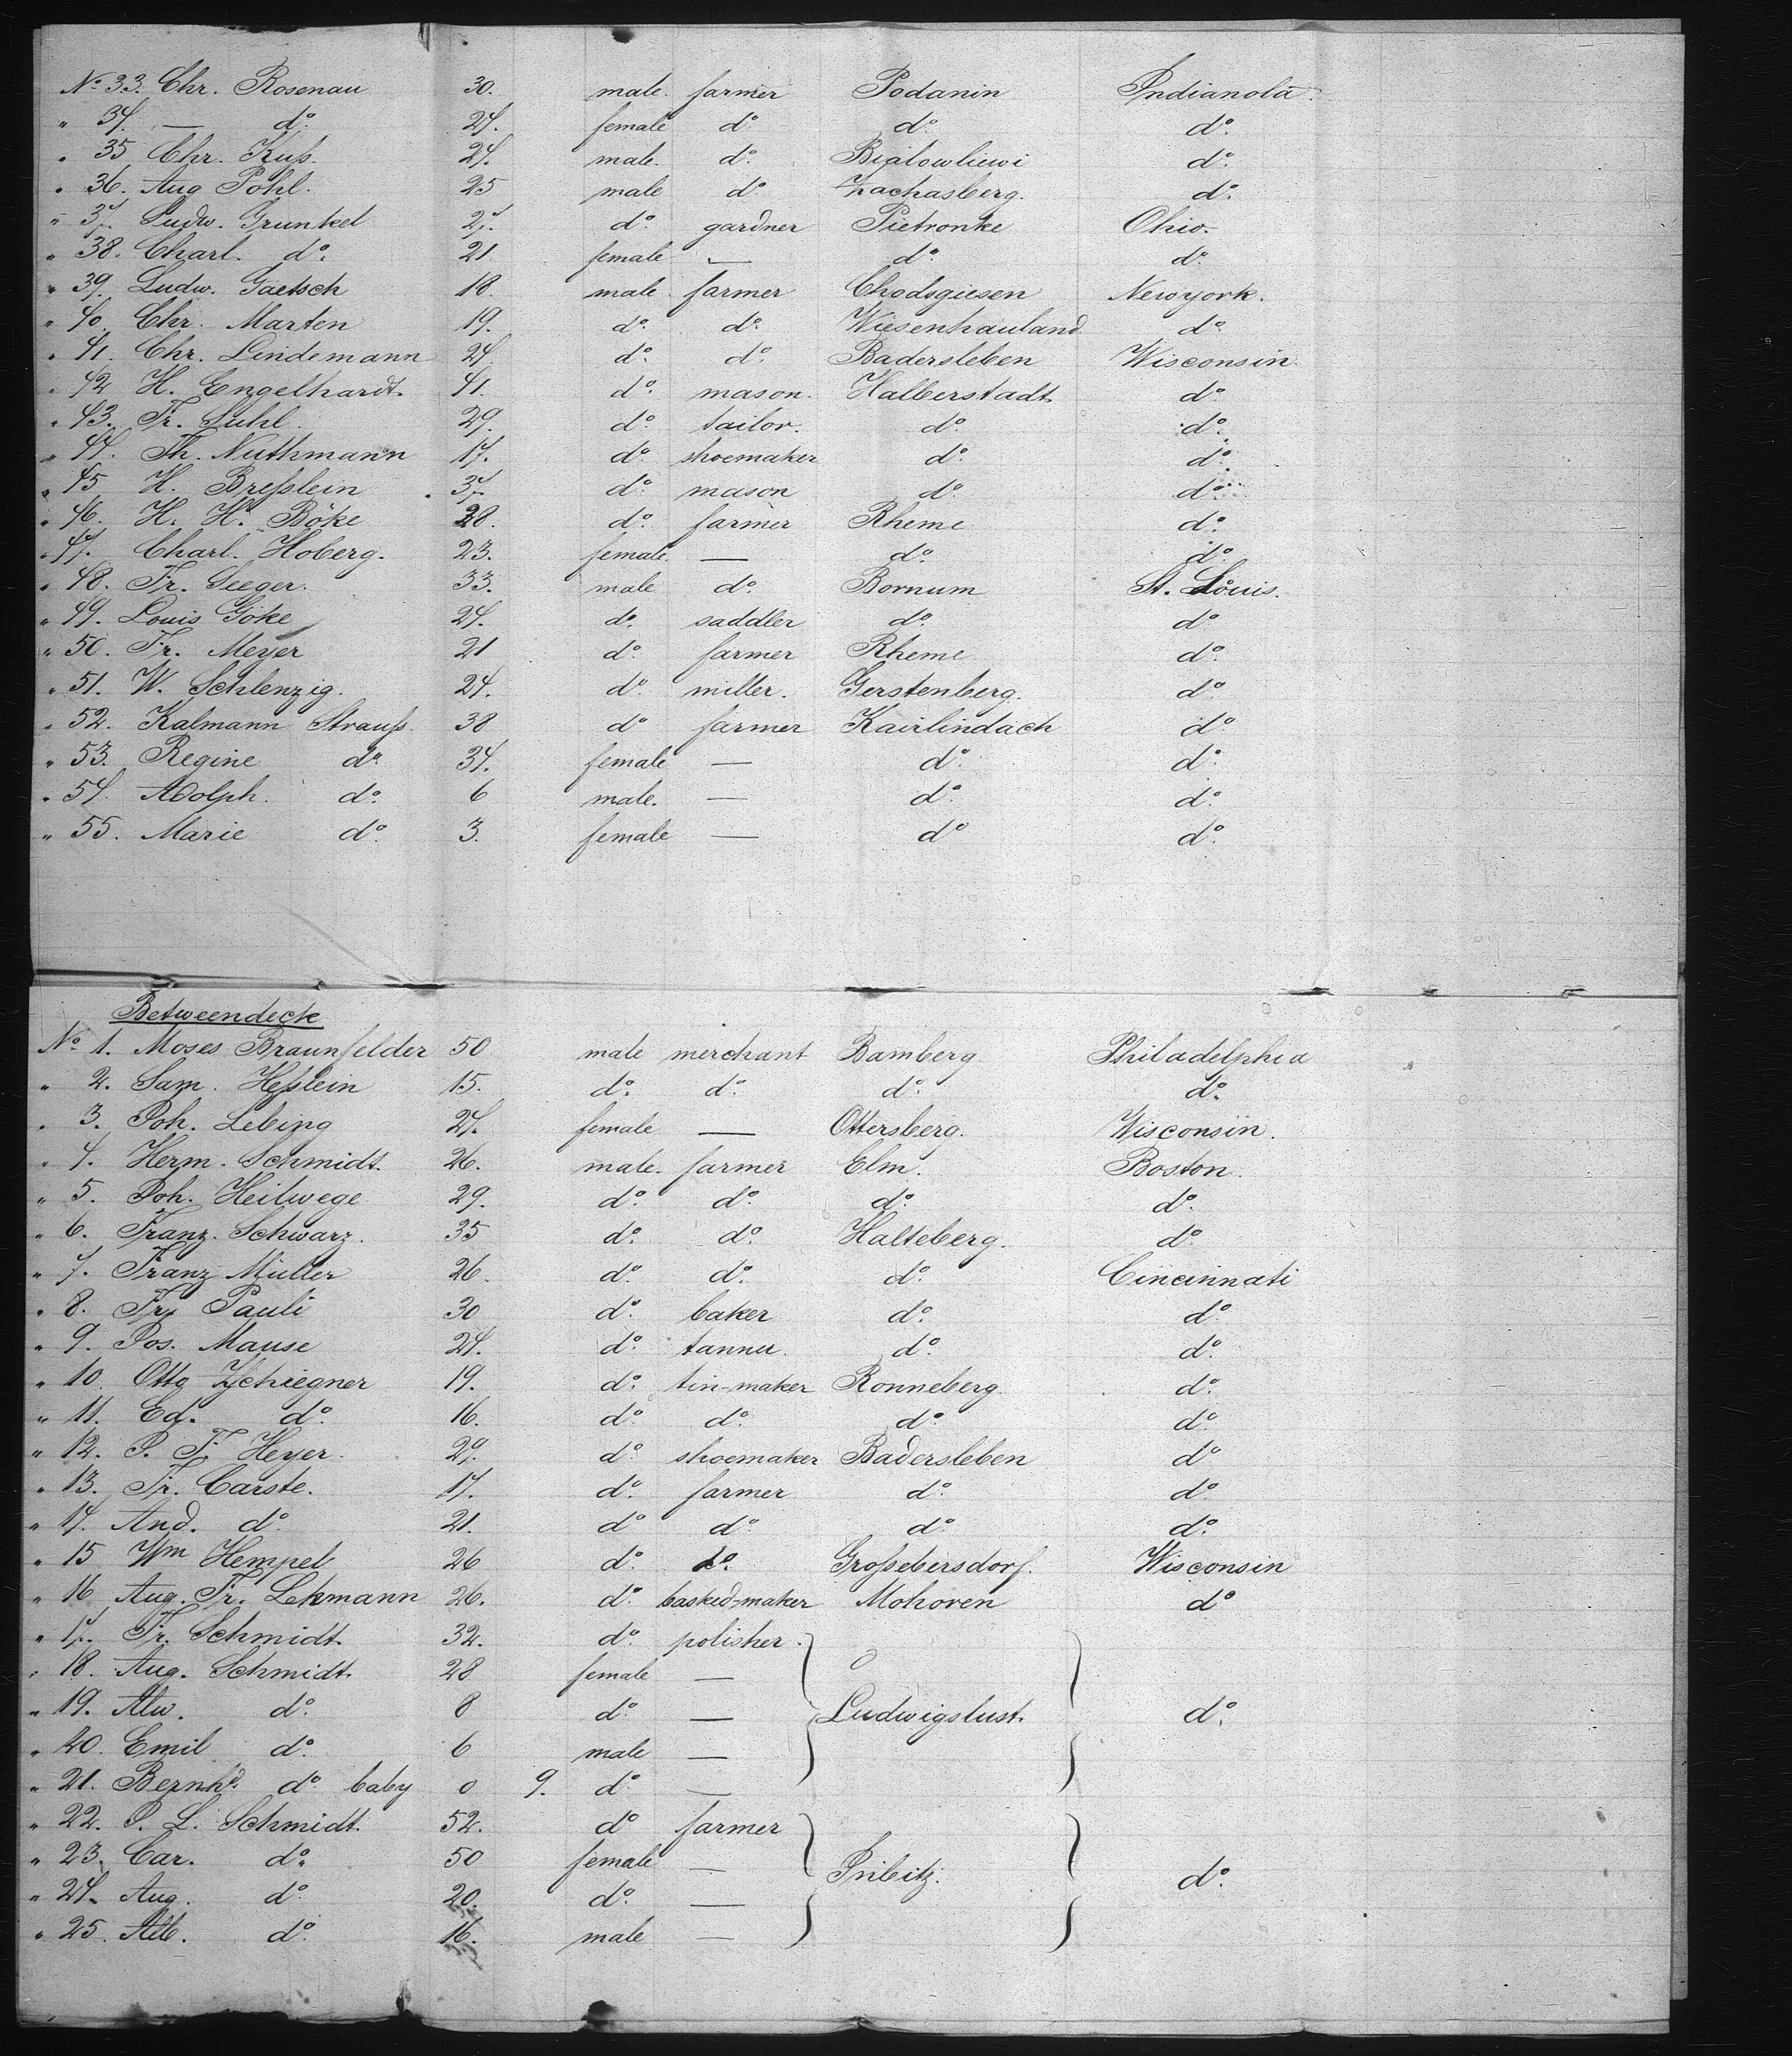 No 33. Chr. Rosenau 30. male. farmer Podanin Indianola.
" 34. — do. 24. female do. do. do.
" 35 Chr. Kuß. 24. male. do. Bialowliewi do.
" 36. Aug Pohl. 25 male do. Zachasberg. do.
" 37. Ludw. Grunkel 27. do. gardner Pietronke Ohio.
" 38. Charl. do. 21 female — do. do.
" 39. Ludw. Gaetsch 18. male farmer Chodsgiesen Newyork.
" 40. Chr. Marten 19. do. do. Wiesenhauland do.
" 41. Chr. Lindemann 24 do. do. Badersleben Wisconsin.
" 42 H. Engelhardt. 41. do. mason. Halberstadt. do
" 43. Fr. Suhl. 29. do. tailor. do. do.
" 44. Th. Nuthmann 17. do. shoemaker do. do.
" 45 H. Breßlein 37. do. mason do. do.
" 46. H. Hr. Böke 28. do. farmer Rheme do.
" 47. Charl. Hoberg. 23. female. — do. do.
" 48. Fr. Seeger. 33. male do. Bornum St. Louis.
" 49. Louis Göke 24. do. saddler do. do
" 50. Fr. Meyer 21 do. farmer Rheme do.
" 51. W. Schlenzig. 24. do. miller. Gerstenberg. do.
" 52. Kalmann Strauß. 38 do farmer Kairlindach do
" 53. Regine do. 34. female — do. do.
" 54. Adolph. do. 6 male. — do. do.
" 55. Marie do. 3. female — do do.
Betweendeck
No 1. Moses Braunfelder 50 male merchant Bamberg. Philadelphia
" 2. Sam. Heßlein 15. do. do. do. do.
" 3. Joh. Lebing 24. female — Ottersberg. Wisconsin.
" 4. Herm. Schmidt. 26. male. farmer Elm. Boston.
" 5. Joh. Heilwege 29. do. do. do. do.
" 6. Franz. Schwarz. 35 do. do. Halteberg. do.
" 7. Franz Müller 26. do. do. do. Cincinnati
" 8. Fr. Pauli 30 do. baker do. do.
" 9. Jos. Mause 24. do. tanner. do. do.
" 10. Otto Zschiegner 19. do. tin-maker Ronneberg do.
" 11. Ed. do. 16. do. do. do. do.
" 12. J. F. Heyer. 29. do. shoemaker Badersleben do
" 13. Fr. Carste. 17. do. farmer do. do.
" 14. And. do. 21. do do. do. do.
" 15 Wm Hempel 26 do. do. Großebersdorf. Wisconsin
" 16 Aug. Fr. Lehmann 26. do. basked-maker Mohoren do
" 17. Fr. Schmidt. 32. do. polisher.
" 18. Aug. Schmidt. 28 female —
" 19. Alw. do. 8 do. — Ludwigslust. do.
" 20. Emil do. 6 male —
" 21. Bernhd. do. baby 0 9. do. —
" 22. J. L. Schmidt. 52. do farmer
" 23. Car. do. 50 female — Pribitz. do.
" 24. Aug. do. 20. do. —
" 25. Alb. do. 16. male —